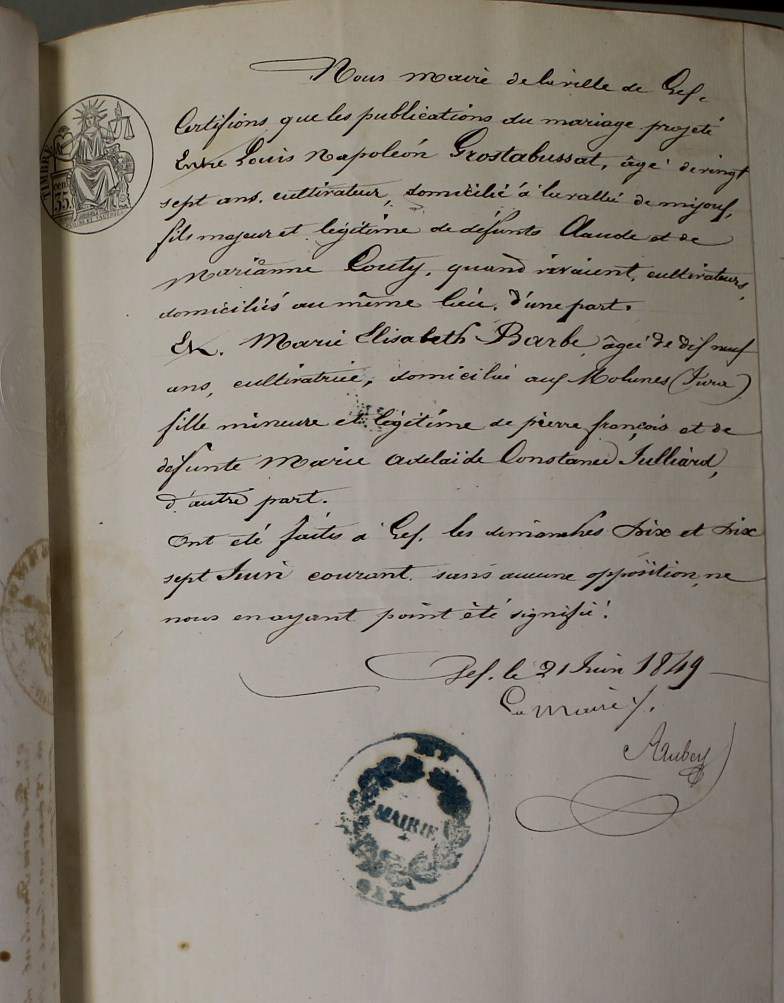 Nous maire de la ville de Gex.
Certifions que les publications du mariage projeté
Entre Louis Napoléon Grostabussat, âgé de vingt
sept ans, cultivateur, domicilié à la vallée de mijoux,
fils majeur et légitime de défunts Claude et de
Marianne Couty, quand vivaient, cultivateurs,
domiciliés au même lieu, d'une part.
Et. Marie Elisabeth Barbe, âgée de dix neuf
ans, cultivatrice, domiciliée aux Molunes (Jura)
fille mineure et légitime de pierre françois et de
défunte Marie adelaide Constance Julliard,
d'autre part.
Ont été faites à Gex, les dimanches dix et dix
sept Juin courant sans aucune opposition, ne
nous en ayant point été signifié.
Gex, le 21 Juin 1849
Le Maire
TIMBRE
35
MAIRIE
GEX